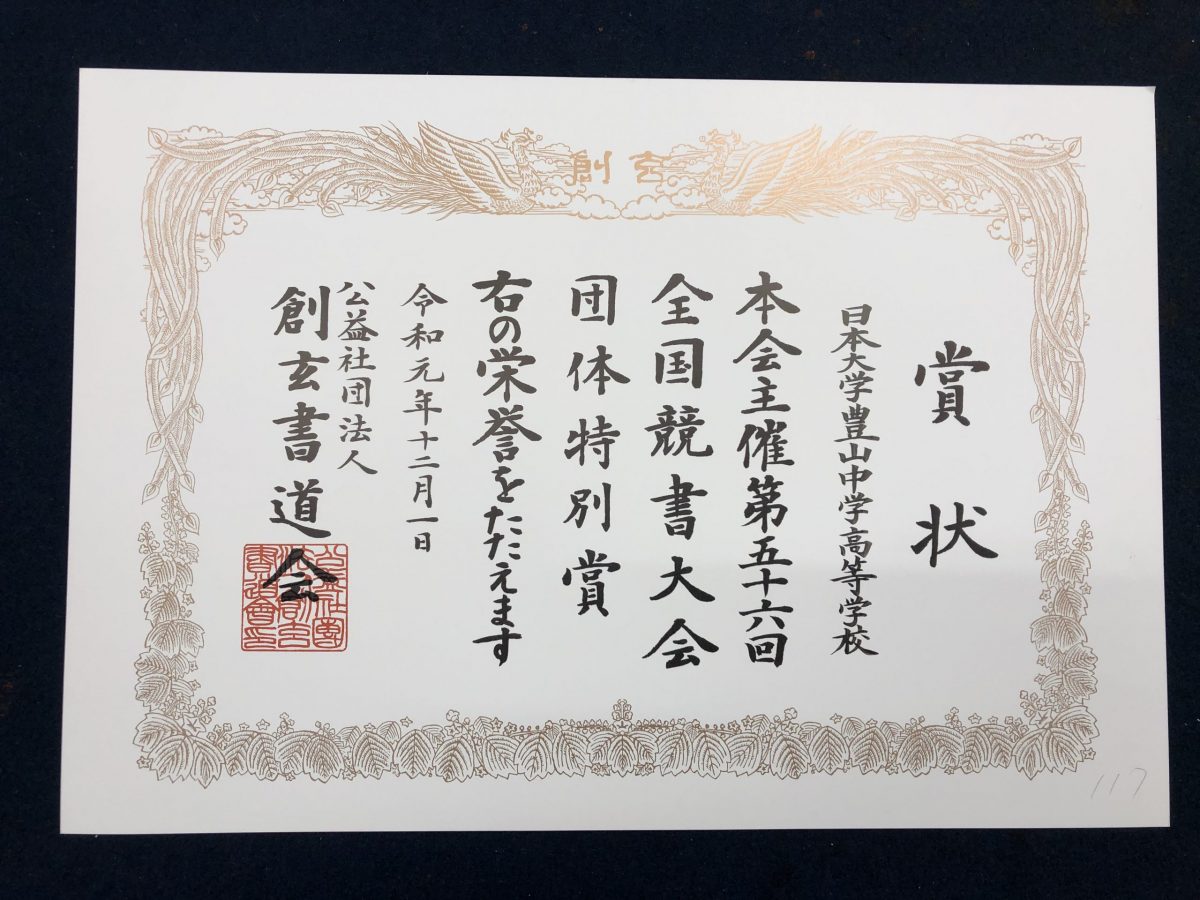 創玄
賞状
日本大学豊山中学高等学校
本会主催第五十六回
全国競書大会
団体特別賞
右の栄誉をたたえます
令和元年十二月一日
公益社団法人
創玄書道会
公益社団
法人創玄
書道會印
117